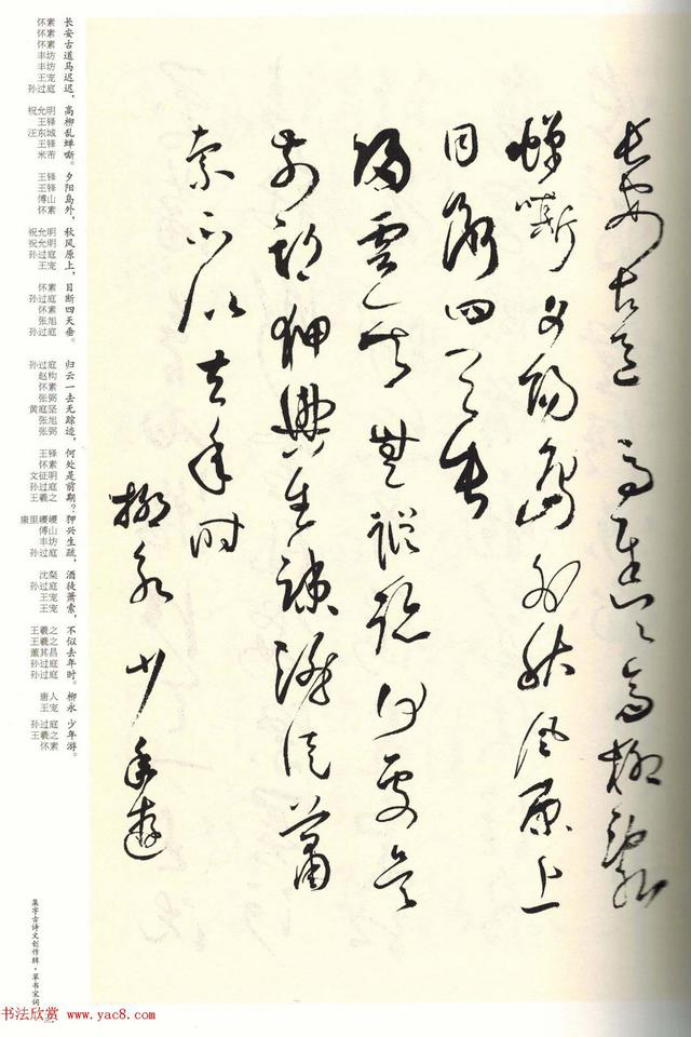 長安古道馬遲遲高柳亂
蟬嘶夕陽島外秋風原上
目斷四天垂
歸雲一去無蹤跡何處是
前期狎興生疎酒徒蕭
索不似去年時
柳永少年遊
长安古道马迟迟，高柳乱蝉嘶。夕阳岛外，秋风原上，目断四天垂。归云一去无踪迹，何处是前期？狎兴生疏，酒徒萧索，不似去年时。柳永 少年游。
怀素 怀素 怀素 丰坊 丰坊 王宠 孙过庭 祝允明 王铎 汪东城 王铎 米芾 王铎 王铎 傅山 怀素 祝允明 祝允明 孙过庭 王宠 怀素 孙过庭 怀素 张旭 孙过庭 孙过庭 赵构 怀素 张弼 黄庭坚 张旭 张弼 王铎 怀素 文征明 孙过庭 王羲之 康里巎巎 傅山 丰坊 孙过庭 沈粲 孙过庭 王宠 王宠 王羲之 王羲之 董其昌 孙过庭 孙过庭 唐人 王宠 孙过庭 王羲之 怀素
集字古诗文创作辑·草书宋词
书法欣赏 www.yac8.com